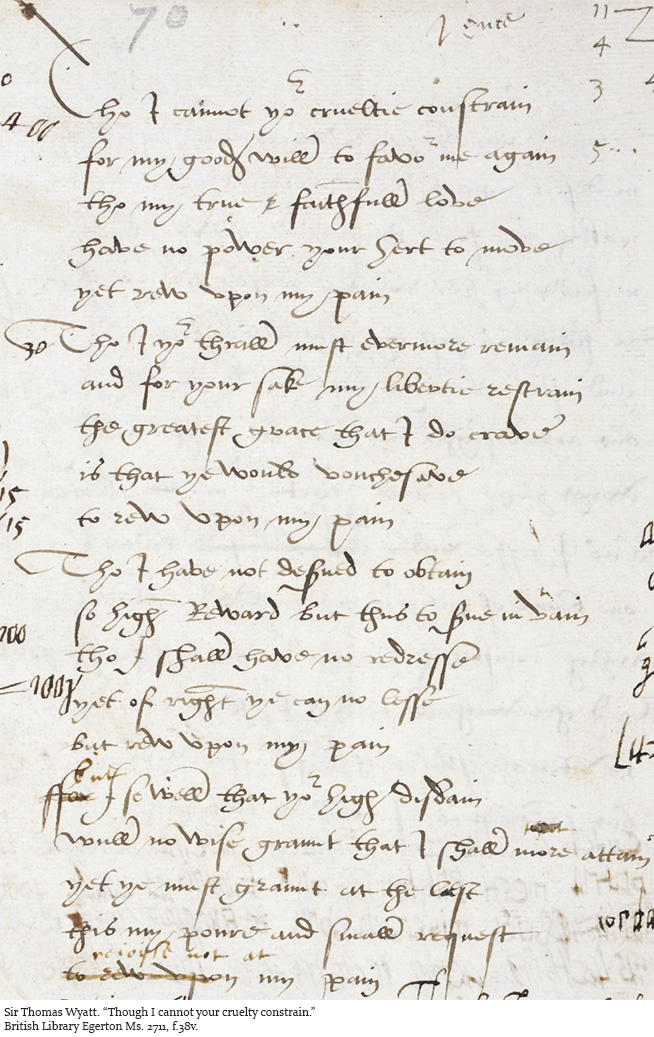 70
1 ence
11
4
3
5
Tho I cannot yoʳ crueltie constrain
400
for my good will to favoʳ me again
tho my true & faithfull love
have no power your hert to move
yet rew vpon my pain
30
Tho I yoʳ thrall must evermore remain
and for your sake my libertie restrain
the greatest grace that I do crave
is that ye would vouchesave
to rew vpon my pain
15
15
Tho I have not deserued to obtain
so high Reward but thus to serue in vain
tho I shall have no redresse
700
yet of right ye can no lesse
but rew vpon my pain
but
I se well that yoʳ high disdain
wull nowise graunt that I shall more attain
yet ye must graunt at the lest
this my poure and small request
reioyse not at
to rew vpon my pain
Sir Thomas Wyatt. “Though I cannot your cruelty constrain.”
British Library Egerton Ms. 2711, f.38v.